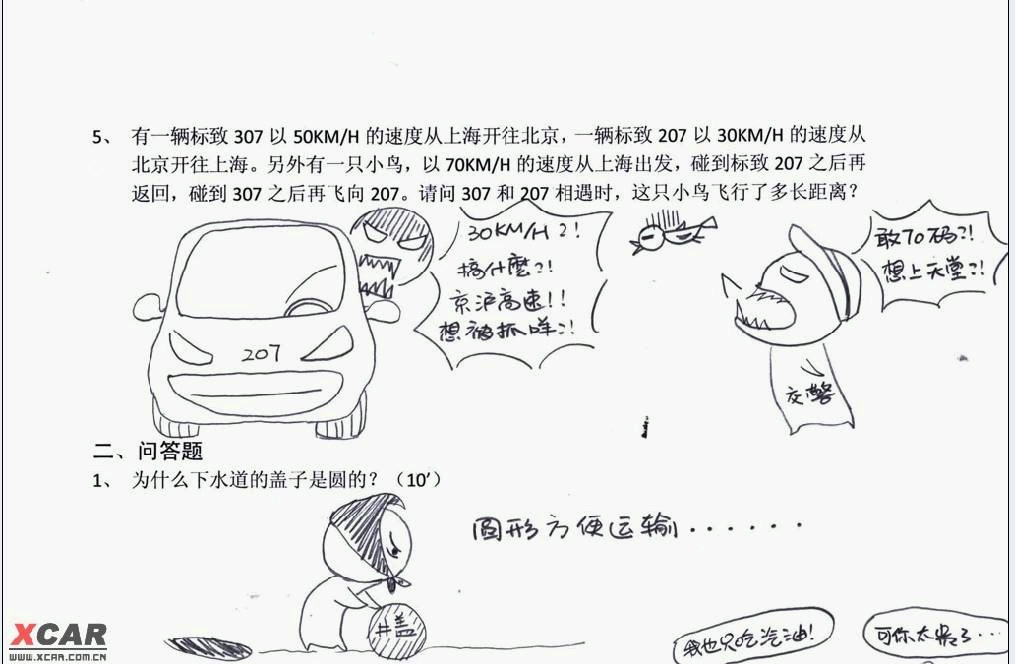 5、 有一辆标致 307 以 50KM/H 的速度从上海开往北京，一辆标致 207 以 30KM/H 的速度从
北京开往上海。另外有一只小鸟，以 70KM/H 的速度从上海出发，碰到标致 207 之后再
返回，碰到 307 之后再飞向 207。请问 307 和 207 相遇时，这只小鸟飞行了多长距离？
30KM/H ?!
搞什麼?!
京沪高速!!
想被抓咩?!
敢70码?!
想上天堂?!
207
交警
二、问答题
1、 为什么下水道的盖子是圆的？（10’）
圆形方便运输······
井盖
我也只吃汽油!
可你太
XCAR
WWW.XCAR.COM.CN